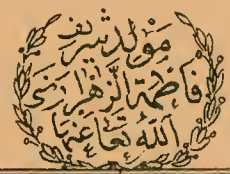 مولد شريف
فاطمة الزهرا رضى
الله تعا عنها